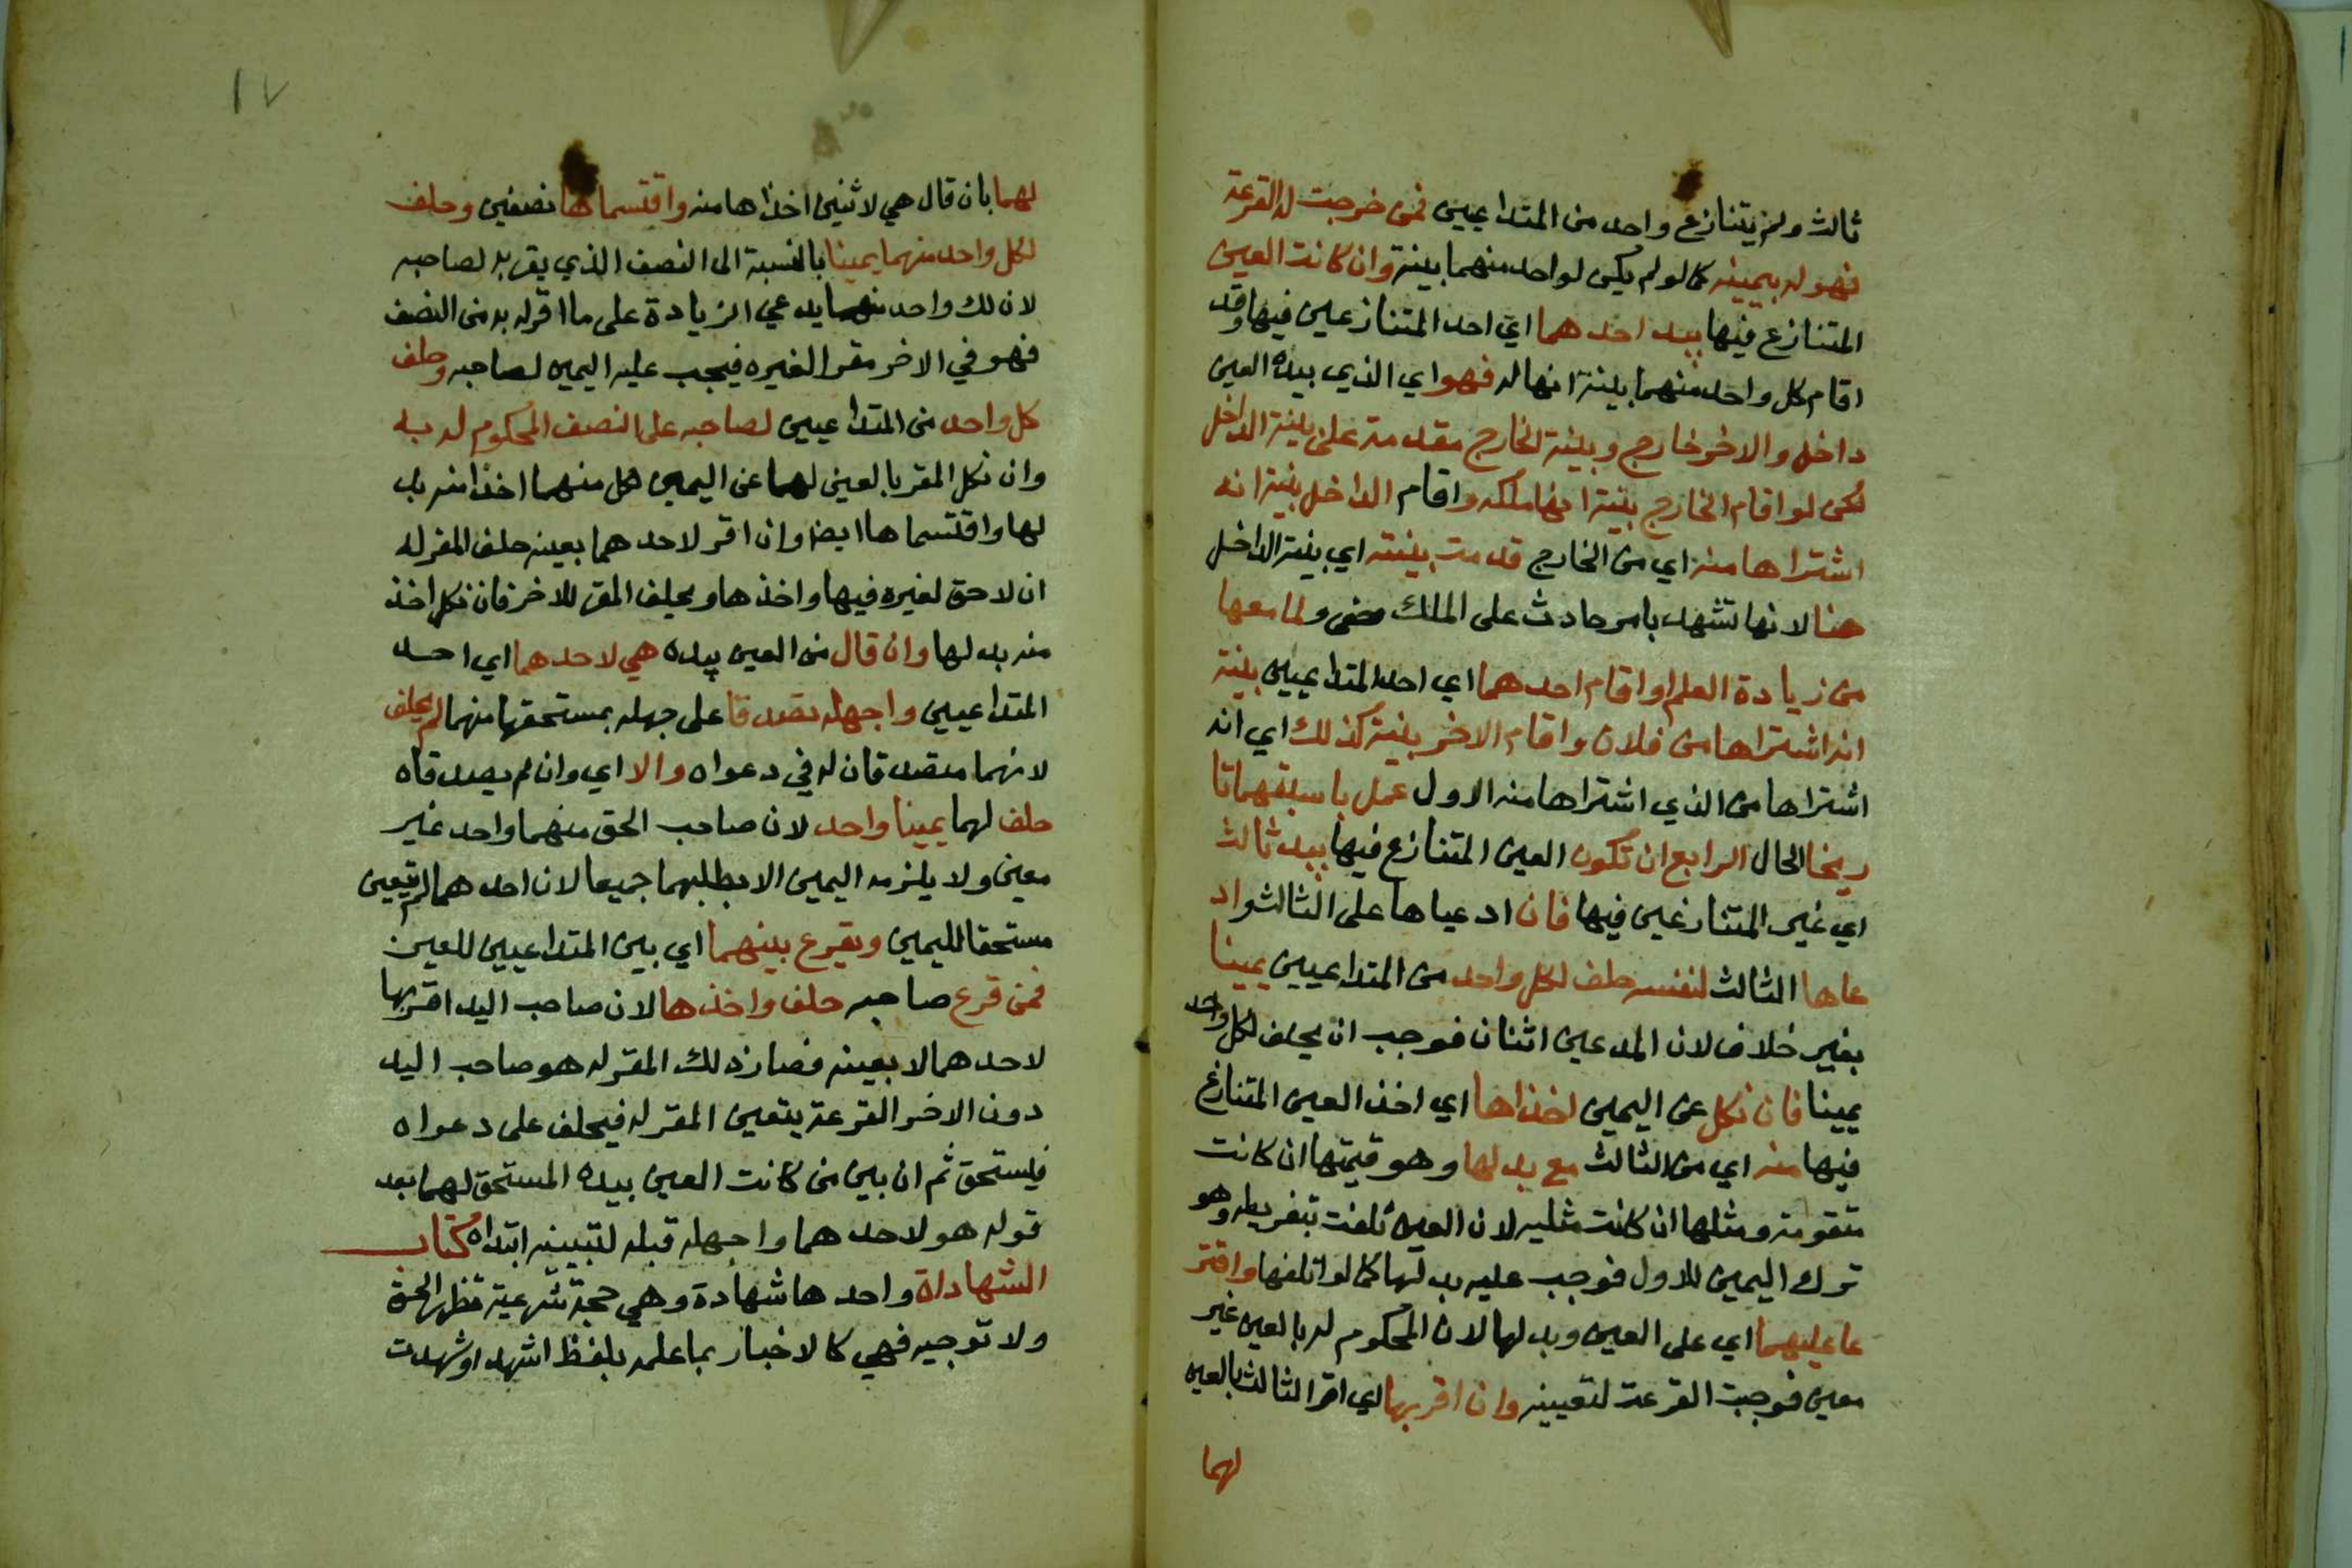 ثالث ولم يتنازع واحد من المتداعيين فمن خرجت له القرعة
فهو له بيمينه كما لو لم يكن لواحد منهما بينة وان كانت العين
المتنازع فيها بيد احدهما اي احد المتنازعين فيها وقد
اقام كل واحد منهما بينة انها له فهو اي الذي بيده العين
داخل والاخر خارج وبينة الخارج مقدمة على بينة الداخل
لكن لو اقام الخارج بينة انها ملكه واقام الداخل بينة انه
اشتراها منه اي من الخارج قدمت بينته اي بينة الداخل
هنا لانها تشهد بامر حادث على الملك خفي ولما معها
من زيادة العلم او اقام احدهما اي احد المتداعيين بينة
انه اشتراها من فلان واقام الاخر بينة كذلك اي انه
اشتراها من الذي اشتراها منه الاول عمل باسبقهما تا
ريخا الحال الرابع ان تكون العين المتنازع فيها بيد ثالث
اي غير المتنازعين فيها فان ادعياها على الثالث واد
عاها الثالث لنفسه حلف لكل واحد من المتداعيين يمينا
بغير خلاف لان المدعين اثنان فوجب ان يحلف لكل واحد
يمينا فان نكل عن اليمين اخذاها اي اخذ العين المتنازع
فيها منه اي من الثالث مع بدلها وهو قيمتها ان كانت
متقومة ومثلها ان كانت مثليه لان العين تلفت بتفريطه وهو
ترك اليمين للاول فوجب عليه بدلها كما لو اتلفها واقتر
عا عليهما اي على العين وبدلها لان المحكوم له بالعين غير
معين فوجبت القرعة لتعيينه وان اقر بها اي اقر الثالث بالعين
لهما
١٧
لهما بان قال هي لاثنين اخذاها منه واقتسماها نصفين وحلف
لكل واحد منهما يمينا بالنسبة الى النصف الذي يقر به لصاحبه
لان لك واحد منهما يدعي الزيادة على ما اقر له به من النصف
فهو في الاخر مقر الغيره فيجب عليه اليمين لصاحبه وحلف
كل واحد من المتداعيين لصاحبه على النصف المحكوم له به
وان نكل المقر بالعين لهما عن اليمين لكل منهما اخذا منه بد
لها واقتسماها ايضا وان اقر لاحدهما بعينه حلف المقر له
ان لا حق لغيره فيها واخذها ويحلف المقر للاخر فان نكل اخذ
منه بدلها وان قال من العين بيده هي لاحدهما اي احد
المتداعيين واجهله فصدقا على جهله بمستحقها منهما لم يحلف
لانهما مصدقان له في دعواه والا اي وان لم يصدقاه
حلف لهما يمينا واحد لان صاحب الحق منهما واحد غير
معين ولا يلزمه اليمين الا بطلبهما جميعا لان احدهما لم يتعين
مستحقا لليمين ويقرع بينهما اي بين المتداعيين للعين
فمن قرع صاحبه حلف واخذها لان صاحب اليد اقر بها
لاحدهما لا بعينه فصار ذلك المقر له هو صاحب اليد
دون الاخر القرعة يتعين المقر له فيحلف على دعواه
فيستحق ثم ان بين من كانت العين بيده المستحق لهما بعد
قوله هو لاحدهما واجهله قبله لتبيينه ابتداه كتاب
الشهادات واحدها شهادة وهي حجة شرعية تظهر الحق
ولا توجبه فهي كالاخبار بما علمه بلفظ اشهد او شهدت